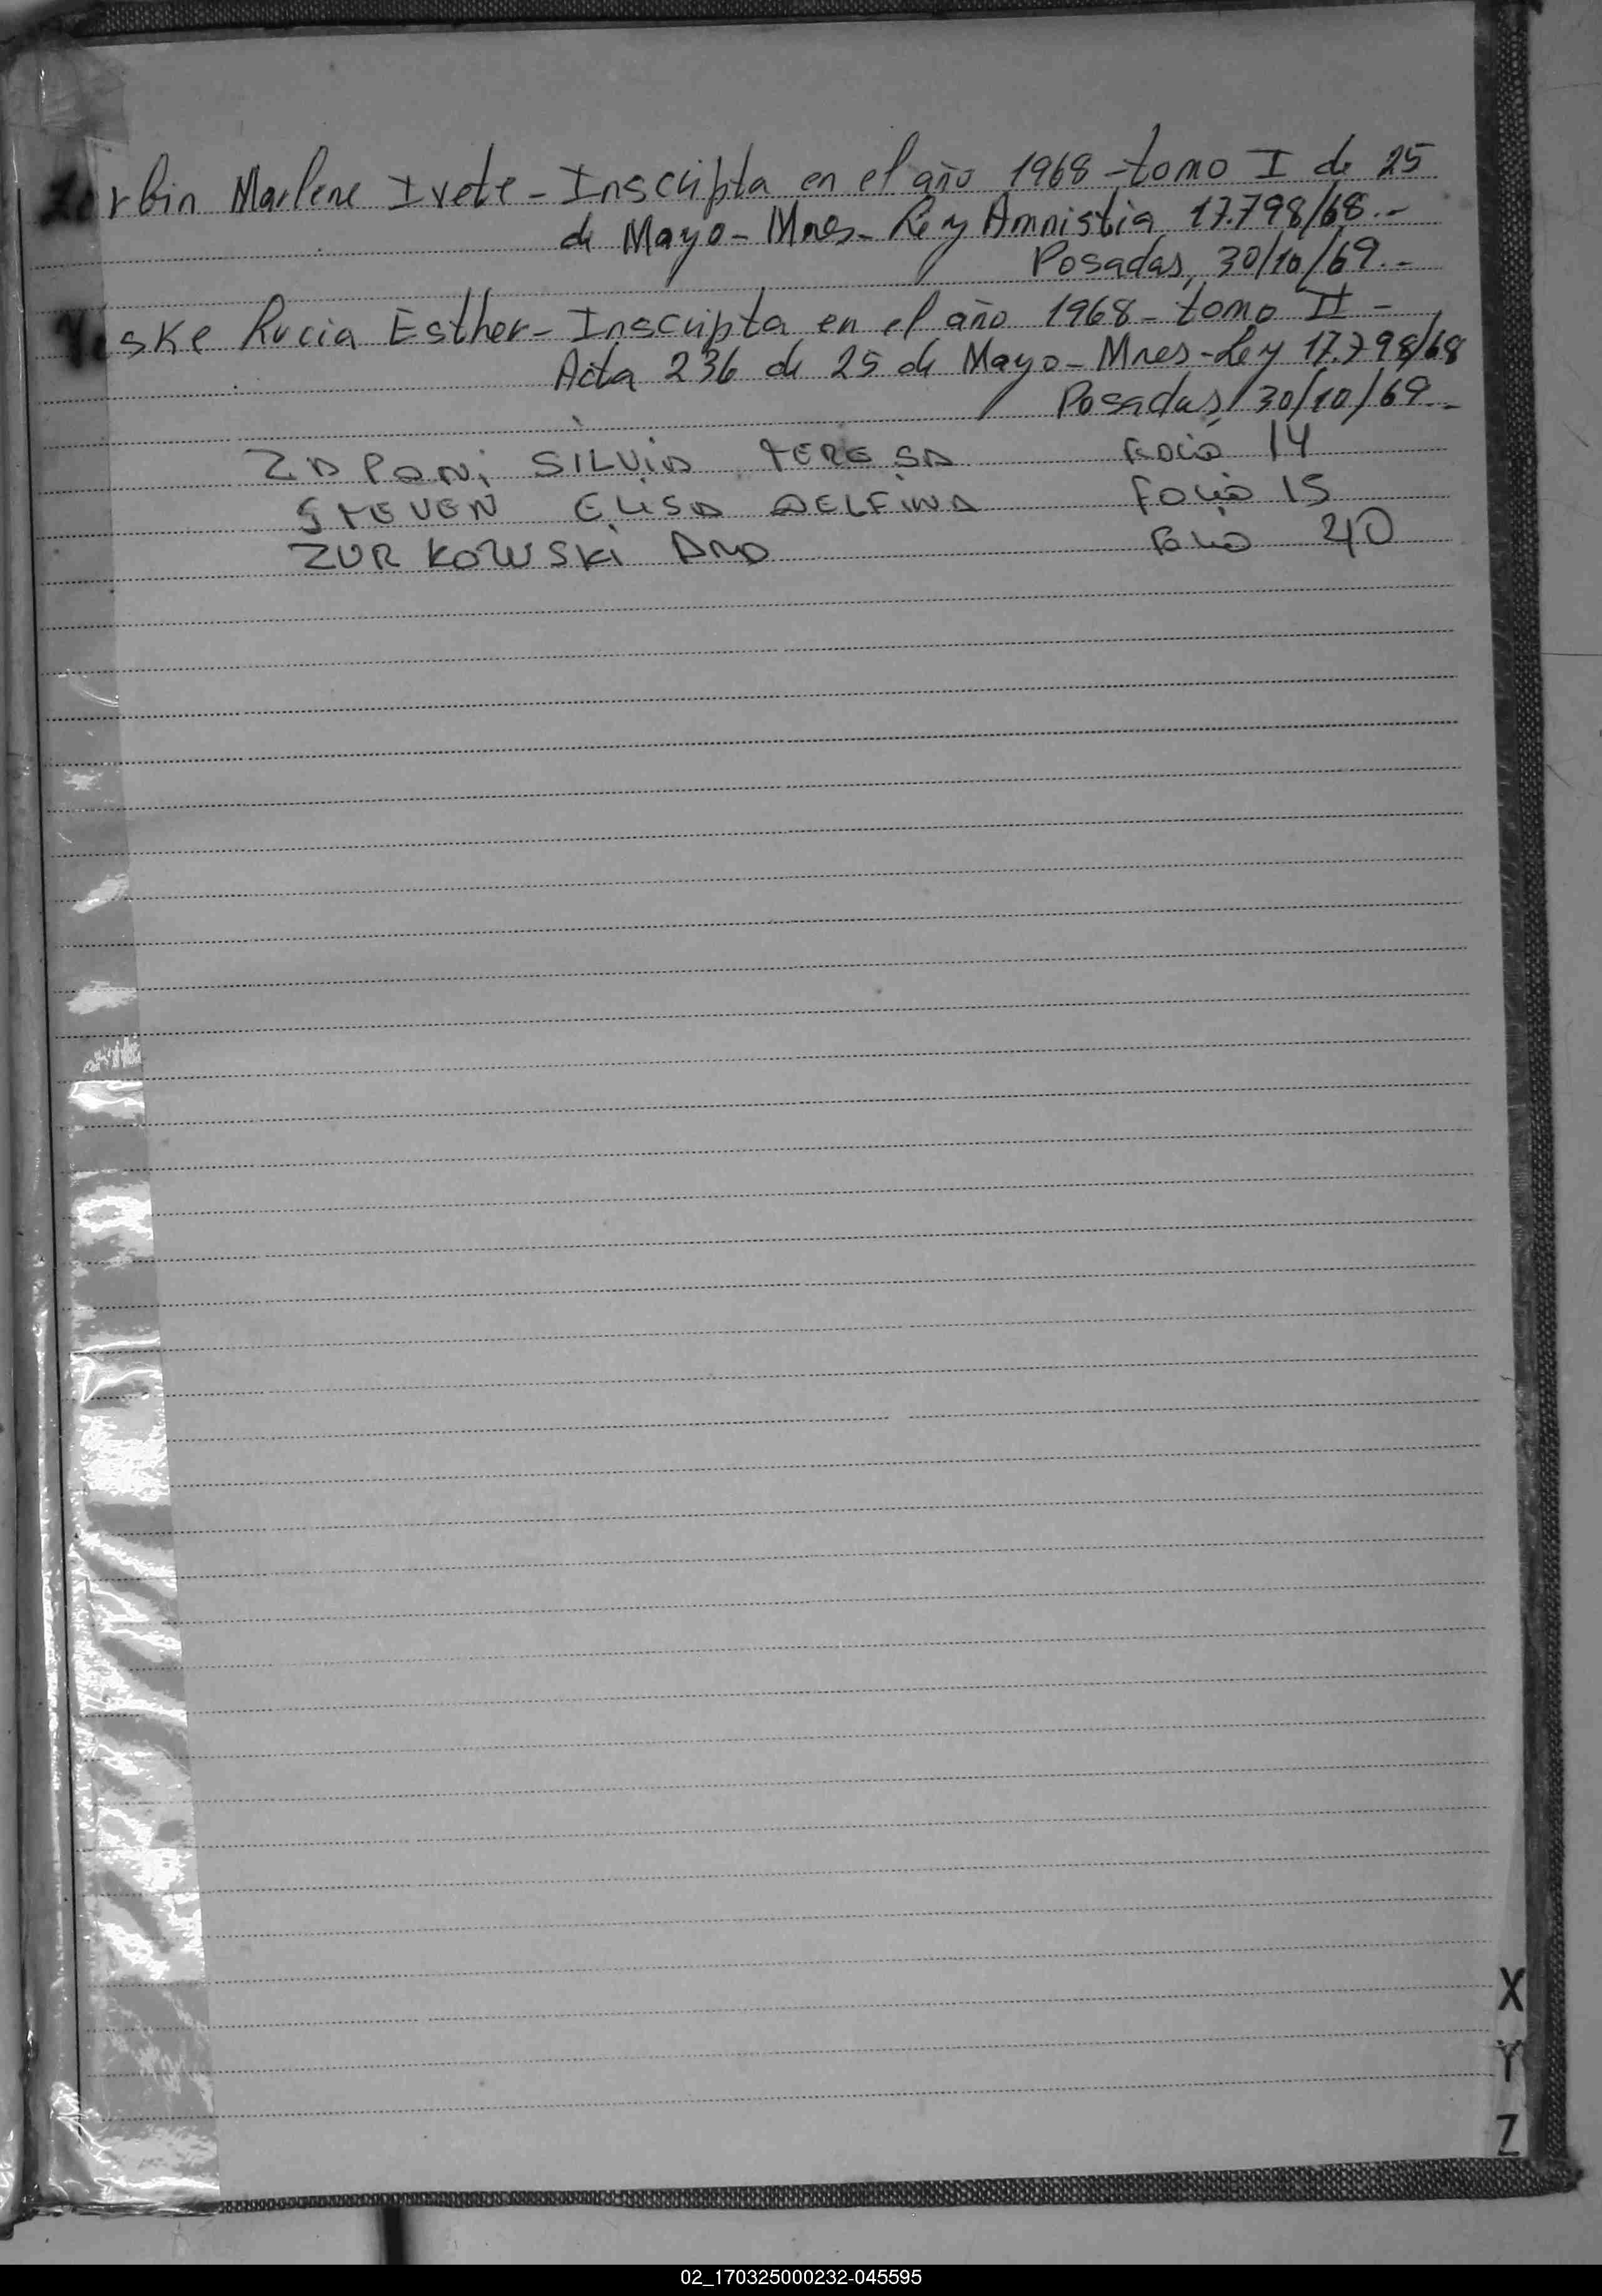 Zerbin Marlene Ivete - Inscripta en el año 1968 - tomo I de 25
de Mayo - Mnes - Ley Amnistia 17.798/68.-
Posadas, 30/10/69.-
Yeske Lucia Esther - Inscripta en el año 1968 - tomo II -
Acta 236 de 25 de Mayo - Mnes - Ley 17.798/68
Posadas, 30/10/69.-
ZAPANi SILViA TERESA FOLiO 14
STEVEN ELiSA DELFiNA FOLiO 15
ZURKOWSKi ANA FOLiO 40
X
Y
Z
02_170325000232-045595